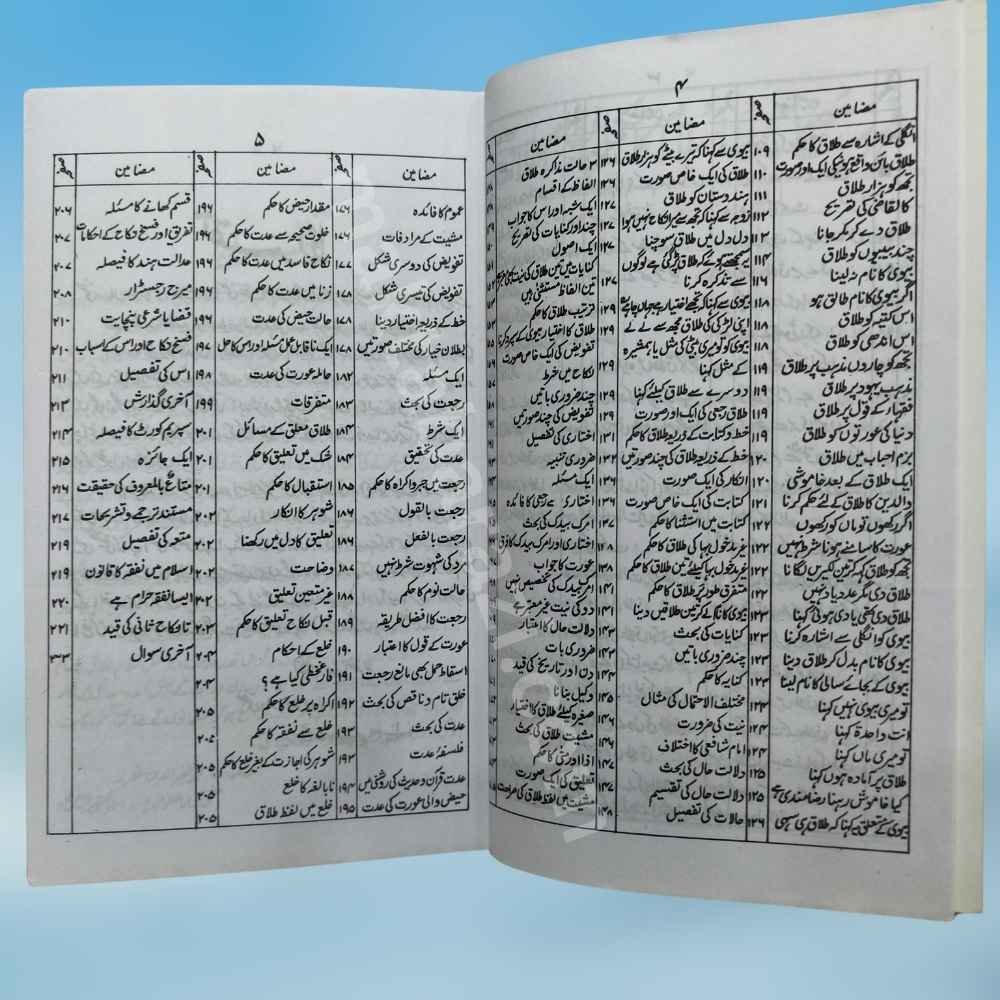 ۴
مضامین
صفحہ
انگلی کے اشارہ سے طلاق کا حکم
طلاق بائن واقع ہونیکی ایک اور صورت ۱۰۹
تجھ کو ہزار طلاق ۱۱۰
کا لقاضی کی تشریح ۱۱۱
طلاق دے کر مکر جانا ۱۱۲
چند بیبیوں کو طلاق ۱۱۳
بیوی کا نام نہ لینا ۱۱۴
اگر بیوی کا نام طالق ہو ۱۱۶
اس کتیہ کو طلاق
اس اندھی کو طلاق ۱۱۸
تجھ کو چاروں مذہب پر طلاق ۱۱۸
مذہب یہود پر طلاق ۱۱۹
فقہاء کے قول پر طلاق ۱۱۹
دنیا کی عورتوں کو طلاق ۱۱۹
بزم احباب میں طلاق ۱۱۹
ایک طلاق کے بعد خاموشی ۱۲۰
والدین کا طلاق کے لئے حکم کرنا ۱۲۱
اگر رکھوں تو ماں کو رکھوں ۱۲۲
عورت کا سامنے ہونا شرط نہیں ۱۲۲
تجھ کو طلاق کہہ کر تین لکیریں لگانا ۱۲۲
طلاق دی مگر عدد یاد نہیں ۱۲۲
طلاق دی تھی یا دی ہوئی کہنا ۱۲۳
بیوی کو انگلی سے اشارہ کرنا ۱۲۳
بیوی کا نام بدل کر طلاق دینا ۱۲۳
بیوی کے بجائے سالی کا نام لینا ۱۲۳
تو میری بیوی نہیں کہنا ۱۲۳
انت واحدۃ کہنا ۱۲۴
تو میری ماں کہنا ۱۲۴
طلاق پر آمادہ ہوں کہنا ۱۲۵
کیا خاموش رہنا رضامندی ہے ۱۲۵
بیوی کے متعلق یہ کہنا کہ طلاق ہی سہی ۱۲۶
مضامین
صفحہ
بیوی سے کہنا کہ تیرے بیٹے کو ہزار طلاق ۱۲۶
طلاق کی ایک خاص صورت ۱۲۶
ہندوستان کو طلاق ۱۲۷
زوجہ سے کہنا کہ تجھ سے میرا نکاح نہیں ہوا ۱۲۷
دل دل میں طلاق سوچنا ۱۲۷
یہ سمجھتے ہوئے کہ طلاق پڑ گئی ہے لوگوں
سے تذکرہ کرنا ۱۲۷
بیوی سے کہنا کہ تجھے اختیار ہے جہاں چاہے ۱۲۹
اپنی لڑکی کی طلاق مجھ سے لے لے ۱۲۹
بیوی کو تو میری بیٹی کی مثل یا ہمشیرہ
کے مثل کہنا ۱۲۹
دوسرے سے طلاق کیلئے کہنا ۱۲۹
طلاق رجعی کی ایک اور صورت ۱۲۹
خط و کتابت کے ذریعہ طلاق کا حکم ۱۳۱
خط کے ذریعہ طلاق کی چند صورتیں
انکار کی ایک صورت
کتابت کی ایک خاص صورت
کتابت میں استثنا کا حکم
غیر مدخول بہا کی طلاق کا حکم ۱۳۸
غیر مدخول بہا کیلئے تین طلاق کا حکم
متفرق طور پر طلاق کا حکم
بیوی کا نام لے کر تین طلاقیں دینا
کنایات کی بحث ۱۴۳
چند ضروری باتیں ۱۴۳
کنایہ کا حکم
مختلف الاحتمال کی مثال ۱۴۵
نیت کی ضرورت ۱۴۶
امام شافعی کا اختلاف ۱۴۶
دلالت حال کی بحث ۱۴۵
دلالت حال کی تقسیم ۱۴۷
حالات کی تفصیل ۱۴۸
مضامین
۳ حالت مذاکرہ طلاق
الفاظ کے اقسام
ایک شبہ اور اس کا جواب
چند اور کنایات کی تشریح
ایک اصول
تین الفاظ مستثنیٰ ہیں
ترتیب طلاق کا حکم
طلاق کا اختیار بیوی کے سپرد کرنا
تفویض کی ایک خاص صورت
نکاح میں شرط
چند ضروری باتیں
تفویض کی چند صورتیں
اختاری کی تفصیل
ضروری تنبیہ
ایک مسئلہ
اختاری سے رجعی کا فائدہ
امرک بیدک کی بحث
اختاری اور امرک بیدک کا فرق
عورت کا جواب
امرک بیدک کی تخصیص نہیں
دو کی نیت غیر معتبر ہے
دلالت حال کا اعتبار
ضروری بات
دن اور تاریخ کی قید
وکیل بنانا
صغیرہ کیلئے طلاق کا اختیار
مشیت طلاق کی بحث
اذا اور متی کا حکم
تعلیق کی ایک صورت
مشیت میں لفظ طلاق کی صراحت
۵
مضامین
صفحہ
عموم کا فائدہ ۱۷۶
مشیت کے مرادفات ۱۷۶
تفویض کی دوسری شکل ۱۷۷
تفویض کی تیسری شکل ۱۷۸
خط کے ذریعہ اختیار دینا ۱۷۸
بطلان خیار کی مختلف صورتیں ۱۷۸
ایک مسئلہ ۱۸۲
رجعت کی بحث ۱۸۳
ایک شرط ۱۸۴
عدت کی تحقیق ۱۸۴
رجعت میں جبر و اکراہ کا حکم ۱۸۵
رجعت بالقول ۱۸۶
رجعت بالفعل ۱۸۶
مرد کی شہوت شرط نہیں ۱۸۷
حالت نوم کا حکم ۱۸۸
رجعت کا افضل طریقہ ۱۸۹
عورت کے قول کا اعتبار ۱۹۰
اسقاط حمل بھی مانع رجعت ۱۹۱
خلق تام و ناقص کی بحث ۱۹۲
عدت کی بحث ۱۹۳
فلسفۂ عدت ۱۹۳
عدت قرآن و حدیث کی روشنی میں ۱۹۴
حیض والی عورت کی عدت ۱۹۵
مضامین
صفحہ
مقدار حیض کا حکم ۱۹۶
خلوت صحیحہ سے عدت کا حکم ۱۹۶
نکاح فاسد میں عدت کا حکم ۱۹۶
زنا میں عدت کا حکم ۱۹۶
حالت حیض کی عدت ۱۹۶
ایک ناقابل عمل مسئلہ اور اس کا حل ۱۹۷
حاملہ عورت کی عدت ۱۹۸
متفرقات ۱۹۹
طلاق معلق کے مسائل ۲۰۱
شک میں تعلیق کا حکم ۲۰۱
استقبال کا حکم ۲۰۱
شوہر کا انکار ۲۰۲
تعلیق کا دل میں رکھنا ۲۰۲
وضاحت ۲۰۲
غیر متعین تعلیق ۲۰۲
قبل نکاح تعلیق کا حکم ۲۰۳
خلع کے احکام ۲۰۴
فارغخطی کیا ہے؟ ۲۰۴
اکراہ پر خلع کا حکم ۲۰۵
خلع سے نفقہ کا حکم ۲۰۵
شوہر کی اجازت کے بغیر خلع کا حکم ۲۰۵
نابالغہ کا خلع ۲۰۵
خلع میں لفظ طلاق ۲۰۵
مضامین
صفحہ
قسم کھانے کا مسئلہ ۲۰۶
تفریق اور فسخ نکاح کے احکامات ۲۰۷
عدالت ہند کا فیصلہ ۲۰۷
میرج رجسٹرار ۲۰۸
قضایا شرعی پنچایت ۲۱۰
فسخ نکاح اور اس کے اسباب ۲۱۰
اس کی تفصیل ۲۱۱
آخری گذارش ۲۱۳
سپریم کورٹ کا فیصلہ ۲۱۴
ایک جائزہ ۲۱۵
متاع بالمعروف کی حقیقت ۲۱۶
مستند ترجمے و تشریحات ۲۱۷
متعہ کی تفصیل ۲۱۹
اسلام میں نفقہ کا قانون ۲۱۹
ایسا نفقہ حرام ہے ۲۲۰
تا نکاح ثانی کی قید ۲۲۱
آخری سوال ۲۳۳